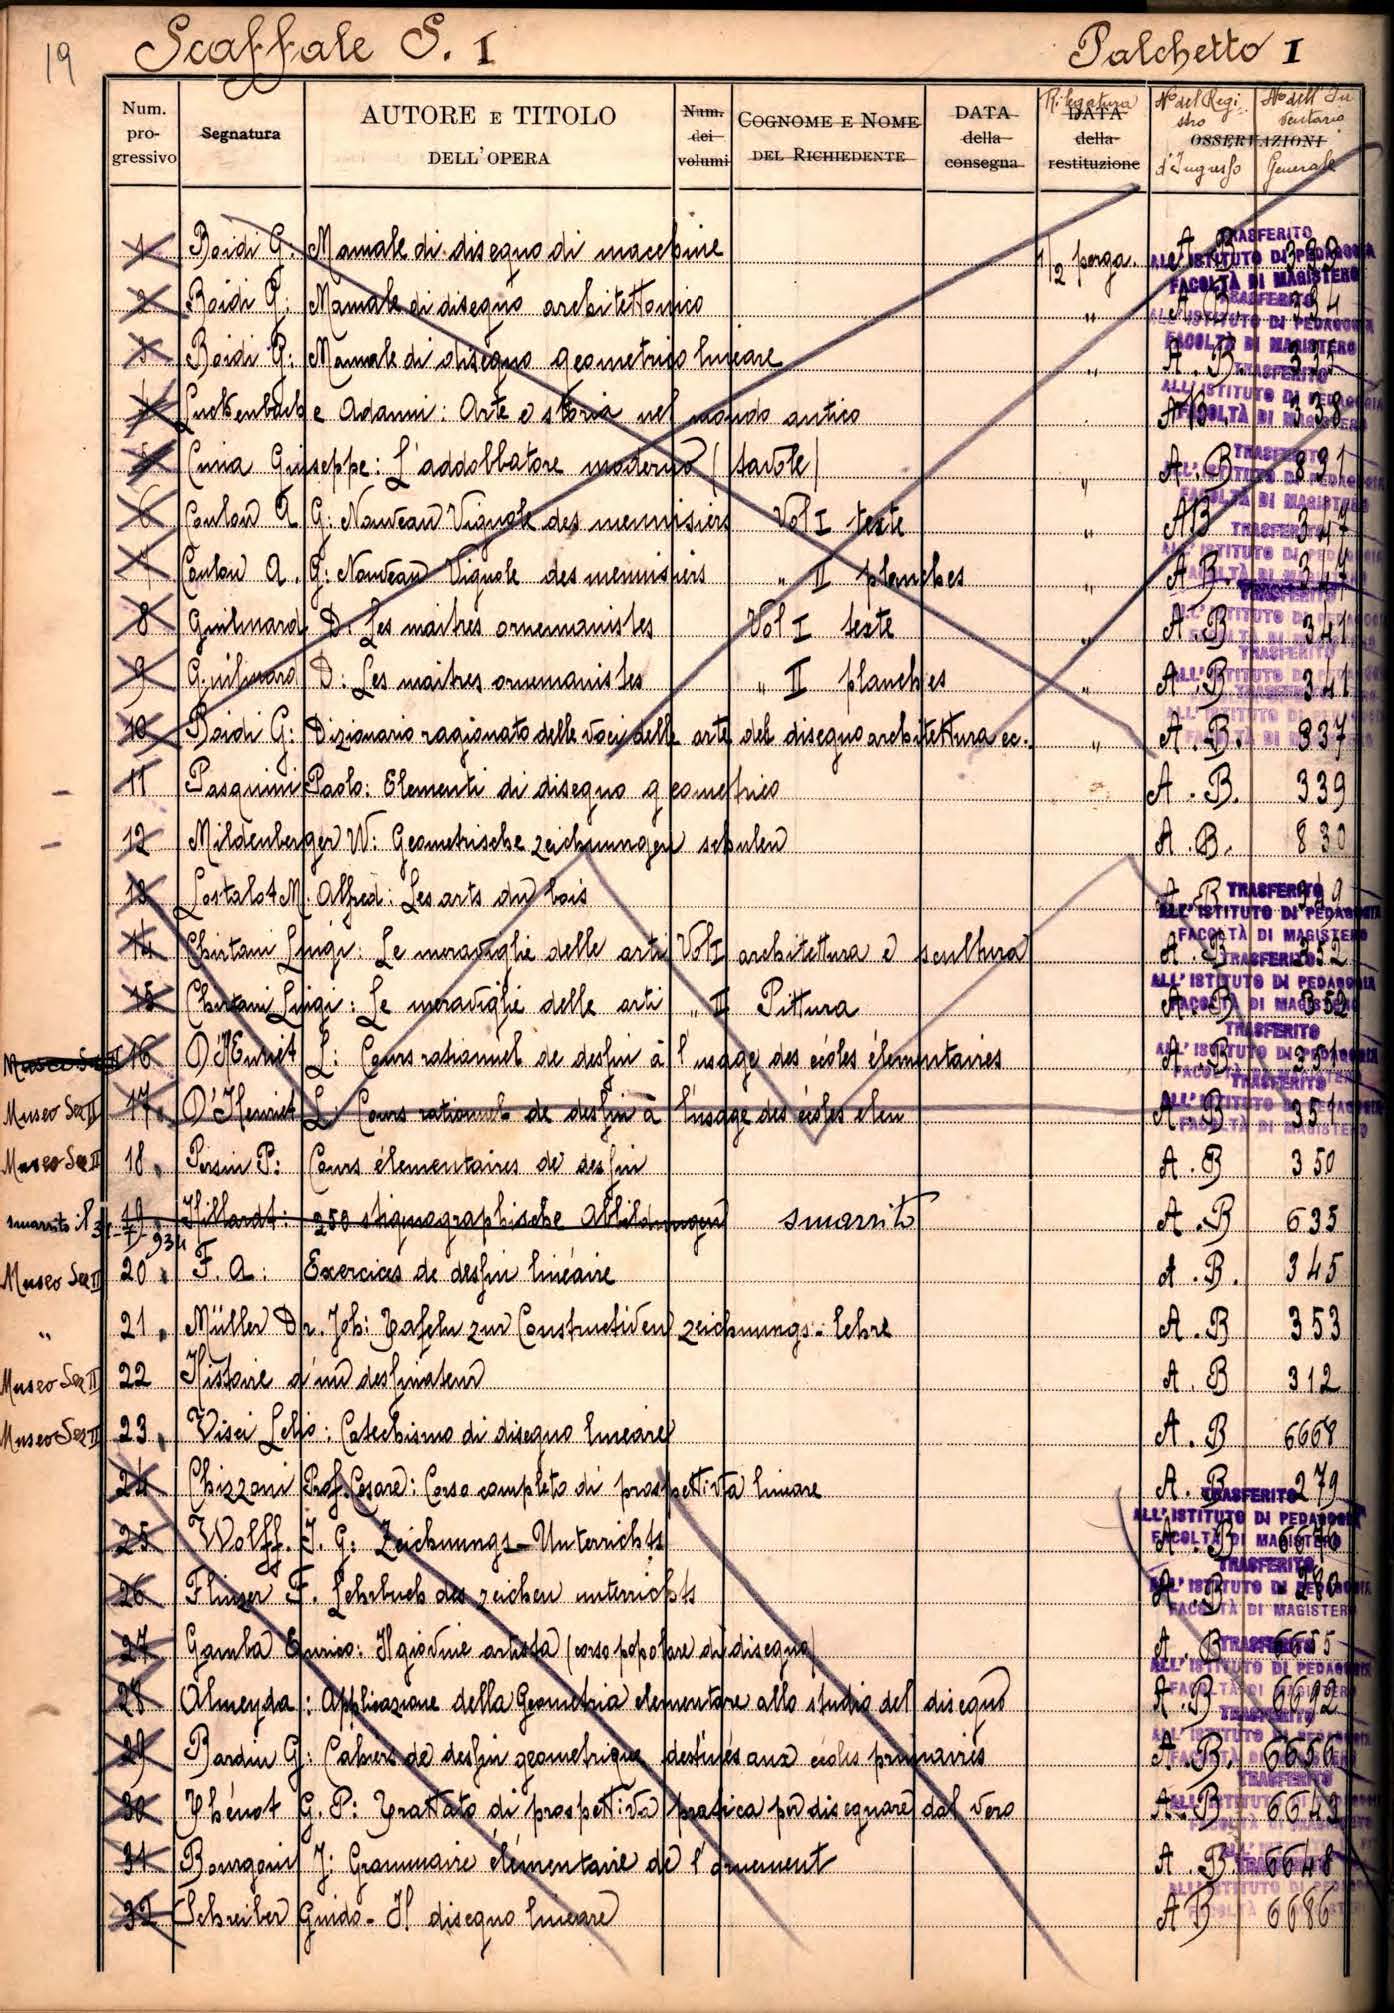 19 Scaffale S. I Palchetto I
Num. progressivo Segnatura AUTORE E TITOLO DELL'OPERA Num. dei volumi COGNOME E NOME DEL RICHIEDENTE DATA della consegna Rilegatura DATA della restituzione OSSERVAZIONI No del Registro d'Ingresso No dell'Inventario Generale
1 Boidi G: Manuale di disegno di macchine 1/2 perga. A. B
TRASFERITO
ALL'ISTITUTO DI PEDAGOGIA
FACOLTÀ DI MAGISTERO
2 Boidi G: Manuale di disegno architettonico " A. B. 334
3 Boidi G: Manuale di disegno geometrico lineare " A. B. 335
4 Luckenbach e Adami: Arte e storia nel mondo antico A B. 338
5 Cima Giuseppe: L'addobbatore moderno (tavole) " A. B 831
6 Coulon A G: Nouveau Vignole des menuisiers Vol I texte " A B 347
7 Coulon A. G: Nouveau Vignole des menuisiers " II planches " A B. 347
8 Guilmard D: Les maitres ornemanistes Vol I texte " A. B 341
9 Guilmard D: Les maitres ornemanistes " II planches " A. B 341
10 Boidi G: Dizionario ragionato delle voci delle arte del disegno architettura ec. " A. B. 337
11 Pasquini Paolo: Elementi di disegno geometrico " A. B. 339
12 Mildenberger W: Geometrische zeichnungen schulen A. B. 830
13 Lostalot M. Alfred: Les arts du bois A. B 349
TRASFERITO
ALL'ISTITUTO DI PEDAGOGIA
FACOLTÀ DI MAGISTERO
14 Chirtani Luigi: Le meraviglie delle arti Vol I architettura e scultura A. B 352
15 Chirtani Luigi: Le meraviglie delle arti " II Pittura A. B 352
16 D'Henriet L: Cours rationnel de dessin à l'usage des écoles élementaires A. B 351
Museo Sez II 17 D'Henriet L Cours rationnel de dessin à l'usage des écoles elem A. B 351
Museo Sez II 18 Persin P: Cours élementaires de dessin A. B 350
smarrito il 31-7-934 19 Hillardt: 250 stigmographische Abbildungen smarrito A. B 635
Museo Sez II 20 F. A: Exercices de dessin linéaire A. B. 345
" 21 Müller Dr. Joh: Tafeln zur Constructiven zeichnungs-lehre A. B 353
Museo Sez II 22 Histoire d'un dessinateur A. B 312
Museo Sez II 23 Visci Lelio: Catechismo di disegno lineare A. B 6668
24 Chizzoni Prof. Cesare: Corso completo di prospettiva lineare A. B 279
TRASFERITO
ALL'ISTITUTO DI PEDAGOGIA
FACOLTÀ DI MAGISTERO
25 Wolff. J. G: Zeichnungs-Unterrichts A. B
26 Flinzer F. Lehrbuch des zeichen unterrichts A. B 280
27 Gamba Enrico: Il giovine artista (corso popolare di disegno) A. B 6655
28 Almeyda: Applicazione della Geometria elementare allo studio del disegno A. B 6692
29 Bardin G: Cahiers de dessin géometrique destinés aux écoles primaires A. B. 6650
30 Thénot G. P: Trattato di prospettiva pratica per disegnare dal vero A. B. 6643
31 Bourgoin J: Grammaire élémentaire de l'ornement A. B. 6648
32 Schreiber Guido - Il disegno lineare A B 6686